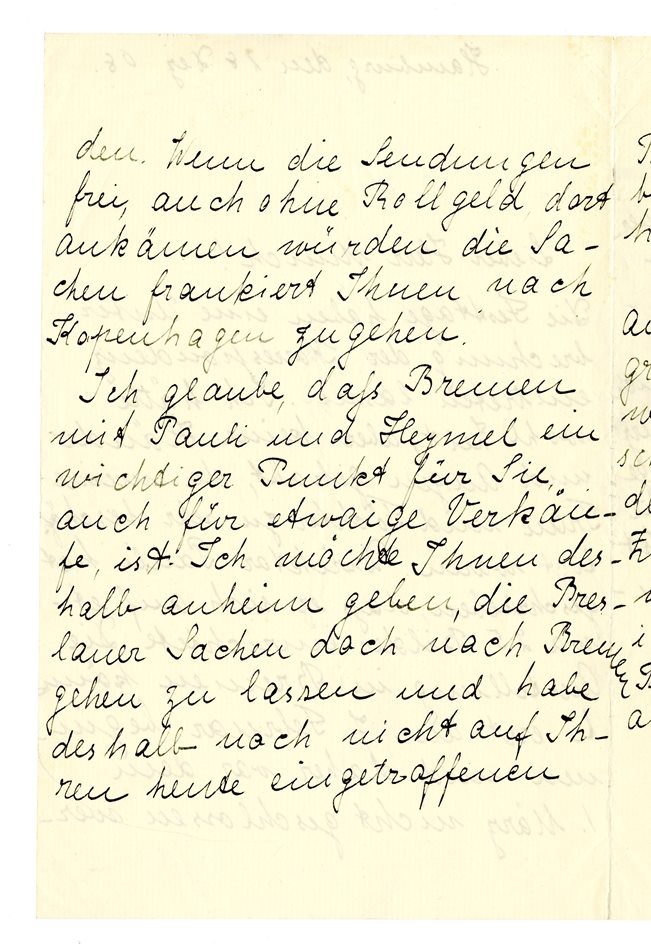 den. Wenn die Sendungen
frei, auch ohne Rollgeld, dort
ankämen würden die Sa-
chen frankiert Ihnen nach
Kopenhagen zugehen.
Ich glaube, daß Bremen
mit Pauli und Heymel ein
wichtiger Punkt für Sie,
auch für etwaige Verkäu-
fe, ist. Ich möchte Ihnen des-
halb anheim geben, die Bres-
lauer Sachen doch nach Bremen
gehen zu lassen und habe
deshalb noch nicht auf Ih-
ren heute eingetroffenen